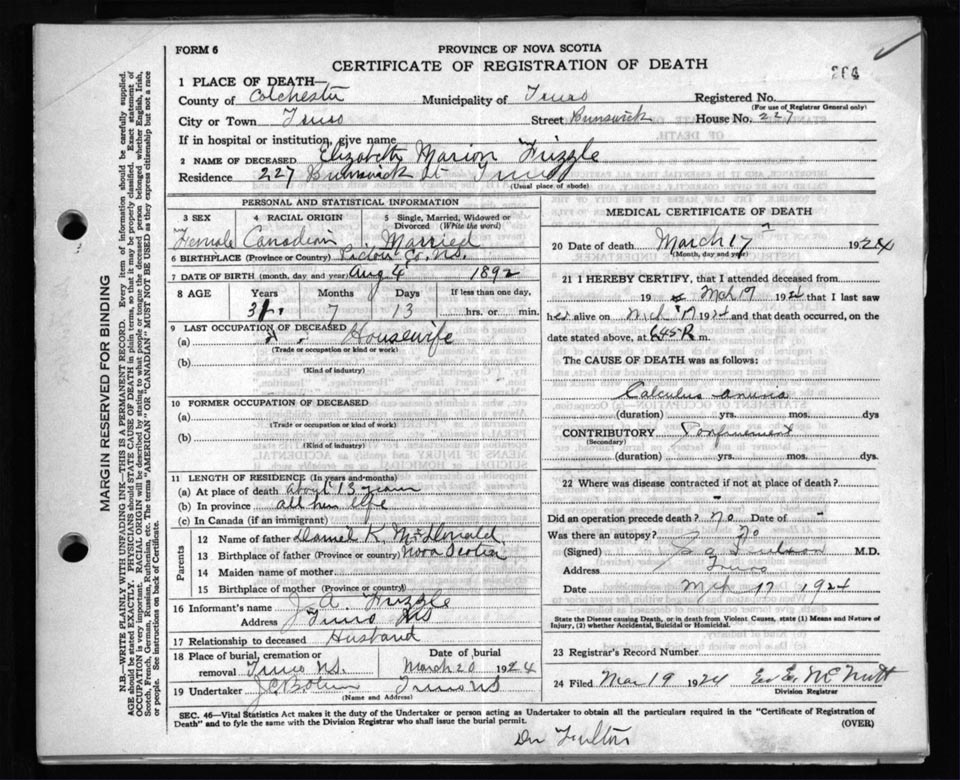 FORM 6
PROVINCE OF NOVA SCOTIA
CERTIFICATE OF REGISTRATION OF DEATH
264
1 PLACE OF DEATH—
County of Colchester Municipality of Truro Registered No.
(For use of Registrar General only)
City or Town Truro Street Brunswick House No. 227
If in hospital or institution, give name
2 NAME OF DECEASED Elizabeth Marion Frizzle
Residence 227 Brunswick St Truro
(Usual place of abode)
PERSONAL AND STATISTICAL INFORMATION
3 SEX 4 RACIAL ORIGIN 5 Single, Married, Widowed or Divorced (Write the word)
Female Canadian Married
6 BIRTHPLACE (Province or Country) Pictou Co. N.S.
7 DATE OF BIRTH (month, day and year) Aug 4 1892
8 AGE Years Months Days If less than one day,
31 7 13 hrs. or min.
9 LAST OCCUPATION OF DECEASED
(a) Housewife
(Trade or occupation or kind or work)
(b)
(Kind of industry)
10 FORMER OCCUPATION OF DECEASED
(a)
(Trade or occupation or kind of work)
(b)
(Kind of industry)
11 LENGTH OF RESIDENCE (In years and months)
(a) At place of death about 13 years
(b) In province all her life
(c) In Canada (if an immigrant)
Parents
12 Name of father Daniel K. McDonald
13 Birthplace of father (Province or country) Nova Scotia
14 Maiden name of mother
15 Birthplace of mother (Province or country)
16 Informant's name J. A. Frizzle
Address Truro NS
17 Relationship to deceased Husband
18 Place of burial, cremation or removal Truro N.S. Date of burial March 20 1924
19 Undertaker Truro NS
(Name and Address)
MEDICAL CERTIFICATE OF DEATH
20 Date of death March 17 1924
(Month, day and year)
21 I HEREBY CERTIFY, that I attended deceased from
19 Mch 9 1924 that I last saw
her alive on Mch 17 1924 and that death occurred, on the
date stated above, at 645 P. m.
The CAUSE OF DEATH was as follows:
Calculus anuria
(duration) yrs. mos. dys
CONTRIBUTORY Confinement
(Secondary)
(duration) yrs. mos. dys.
22 Where was disease contracted if not at place of death?
Did an operation precede death? no Date of -
Was there an autopsy? No
(Signed) M.D.
Address Truro
Date Mch 17 1924
State the Disease causing Death, or in death from Violent Causes, state (1) Means and Nature of Injury, (2) whether Accidental, Suicidal or Homicidal.
23 Registrar's Record Number
24 Filed Mar 19 1924 McNutt
Division Registrar
SEC. 46—Vital Statistics Act makes it the duty of the Undertaker or person acting as Undertaker to obtain all the particulars required in the "Certificate of Registration of
Death" and to fyle the same with the Division Registrar who shall issue the burial permit. (OVER)
Dr Fulton
MARGIN RESERVED FOR BINDING
N.B.—WRITE PLAINLY WITH UNFADING INK—THIS IS A PERMANENT RECORD. Every item of information should be carefully supplied.
AGE should be stated EXACTLY. PHYSICIANS should STATE CAUSE OF DEATH in plain terms, so that it may be properly classified. Exact statement of
OCCUPATION is very important. RACIAL ORIGIN will be described by stating to what people or tongue the deceased person belonged whether English, Irish,
Scotch, French, German, Russian, Ruthenian, etc. The terms "AMERICAN" OR "CANADIAN" MUST NOT BE USED as they express citizenship but not a race
or people. See instructions on back of Certificate.